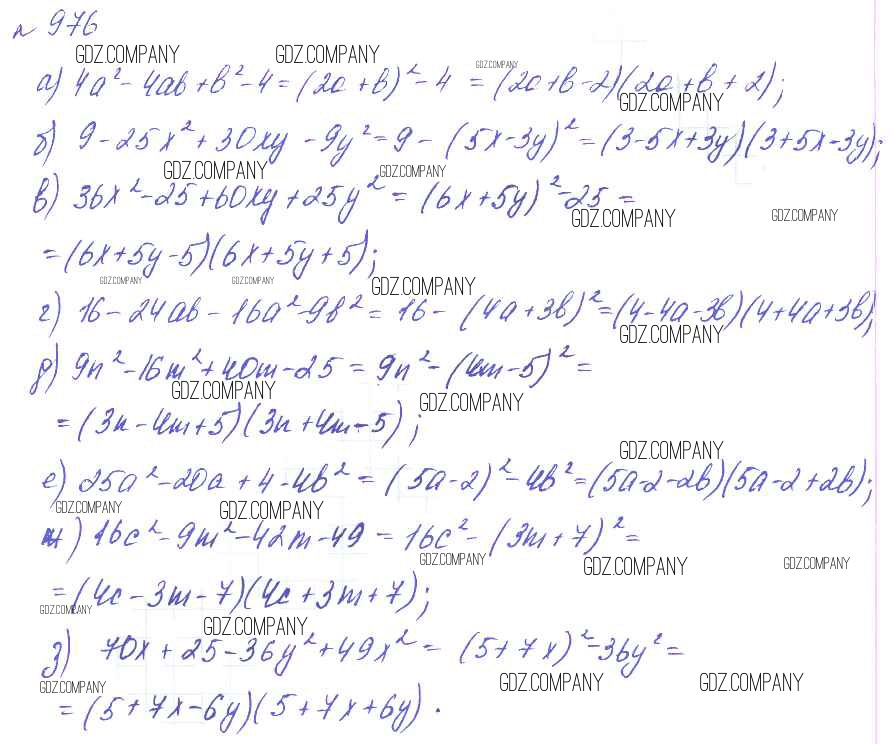 № 976
GDZ.COMPANY GDZ.COMPANY GDZ.COMPANY
а) 4a² - 4ab + b² - 4 = (2a + b)² - 4 = (2a + b - 2)(2a + b + 2);
GDZ.COMPANY
б) 9 - 25x² + 30xy - 9y² = 9 - (5x - 3y)² = (3 - 5x + 3y)(3 + 5x - 3y);
GDZ.COMPANY GDZ.COMPANY
в) 36x² - 25 + 60xy + 25y² = (6x + 5y)² - 25 =
GDZ.COMPANY GDZ.COMPANY
= (6x + 5y - 5)(6x + 5y + 5);
GDZ.COMPANY GDZ.COMPANY GDZ.COMPANY
г) 16 - 24ab - 16a² - 9b² = 16 - (4a + 3b)² = (4 - 4a - 3b)(4 + 4a + 3b);
GDZ.COMPANY
д) 9n² - 16m² + 40m - 25 = 9n² - (4m - 5)² =
GDZ.COMPANY GDZ.COMPANY
= (3n - 4m + 5)(3n + 4m - 5);
GDZ.COMPANY
е) 25a² - 20a + 4 - 4b² = (5a - 2)² - 4b² = (5a - 2 - 2b)(5a - 2 + 2b);
GDZ.COMPANY GDZ.COMPANY
ж) 16c² - 9m² - 42m - 49 = 16c² - (3m + 7)² =
GDZ.COMPANY GDZ.COMPANY GDZ.COMPANY
= (4c - 3m - 7)(4c + 3m + 7);
GDZ.COMPANY GDZ.COMPANY
з) 70x + 25 - 36y² + 49x² = (5 + 7x)² - 36y² =
GDZ.COMPANY GDZ.COMPANY GDZ.COMPANY
= (5 + 7x - 6y)(5 + 7x + 6y).